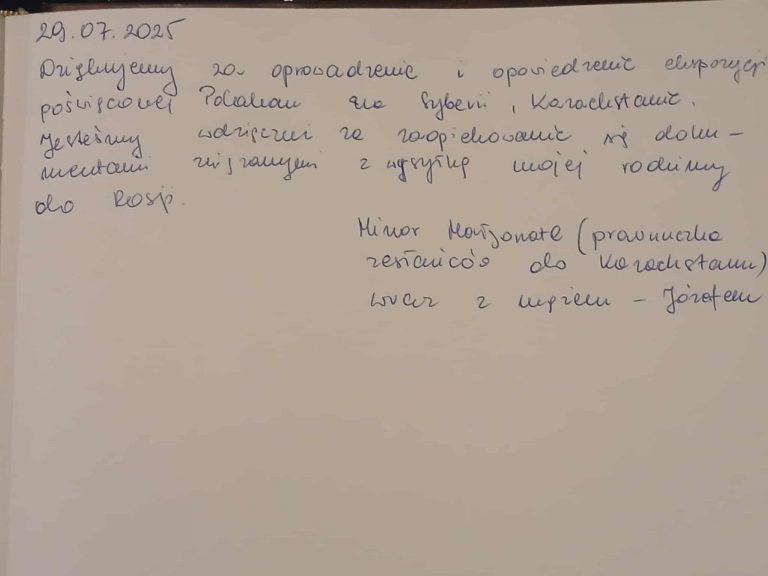 29.07.2025
Dziękujemy za oprowadzenie i opowiedzenie ekspozycji
poświęconej Polakom na Syberii, Kazachstanie.
Jesteśmy wdzięczni za zaopiekowanie się doku-
mentami związanymi z wysyłką mojej rodziny
do Rosji.
Minor Małgorzata (prawnuczka
zesłańców do Kazachstanu)
wraz z mężem - Józefem